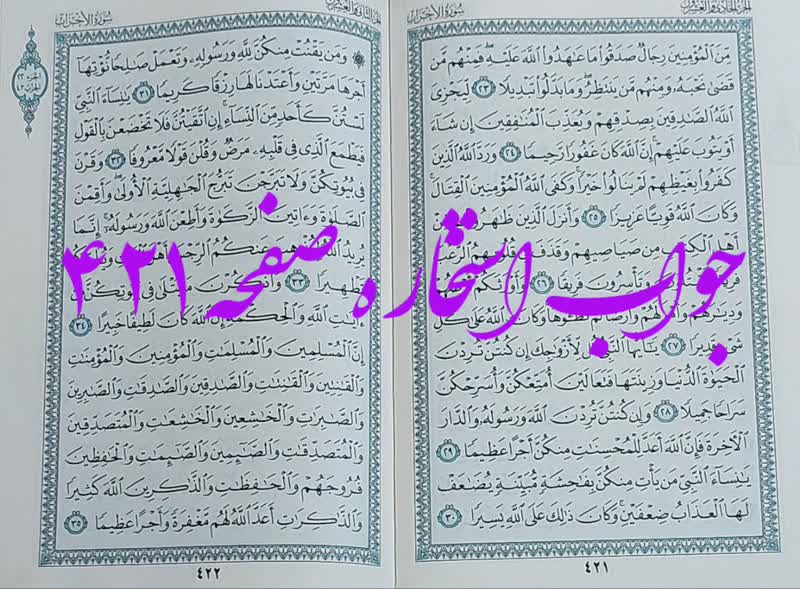 الجزء الحادي والعشرون
سورة الأحزاب
مِّنَ ٱلْمُؤْمِنِينَ رِجَالٌ صَدَقُوا۟ مَا عَٰهَدُوا۟ ٱللَّهَ عَلَيْهِ ۖ فَمِنْهُم مَّن
قَضَىٰ نَحْبَهُۥ وَمِنْهُم مَّن يَنتَظِرُ ۖ وَمَا بَدَّلُوا۟ تَبْدِيلًا ٢٣ لِّيَجْزِىَ
ٱللَّهُ ٱلصَّٰدِقِينَ بِصِدْقِهِمْ وَيُعَذِّبَ ٱلْمُنَٰفِقِينَ إِن شَآءَ
أَوْ يَتُوبَ عَلَيْهِمْ ۚ إِنَّ ٱللَّهَ كَانَ غَفُورًا رَّحِيمًا ٢٤ وَرَدَّ ٱللَّهُ ٱلَّذِينَ
كَفَرُوا۟ بِغَيْظِهِمْ لَمْ يَنَالُوا۟ خَيْرًا ۚ وَكَفَى ٱللَّهُ ٱلْمُؤْمِنِينَ ٱلْقِتَالَ ۚ
وَكَانَ ٱللَّهُ قَوِيًّا عَزِيزًا ٢٥ وَأَنزَلَ ٱلَّذِينَ ظَٰهَرُوهُم مِّنْ
أَهْلِ ٱلْكِتَٰبِ مِن صَيَاصِيهِمْ وَقَذَفَ فِى قُلُوبِهِمُ ٱلرُّعْبَ
فَرِيقًا وَتَأْسِرُونَ فَرِيقًا ٢٦ وَأَوْرَثَكُمْ
وَدِيَٰرَهُمْ وَأَمْوَٰلَهُمْ وَأَرْضًا لَّمْ تَطَـُٔوهَا ۚ وَكَانَ ٱللَّهُ عَلَىٰ كُلِّ
شَىْءٍ قَدِيرًا ٢٧ يَٰٓأَيُّهَا ٱلنَّبِىُّ قُل لِّأَزْوَٰجِكَ إِن كُنتُنَّ تُرِدْنَ
ٱلْحَيَوٰةَ ٱلدُّنْيَا وَزِينَتَهَا فَتَعَالَيْنَ أُمَتِّعْكُنَّ وَأُسَرِّحْكُنَّ
سَرَاحًا جَمِيلًا ٢٨ وَإِن كُنتُنَّ تُرِدْنَ ٱللَّهَ وَرَسُولَهُۥ وَٱلدَّارَ
ٱلْءَاخِرَةَ فَإِنَّ ٱللَّهَ أَعَدَّ لِلْمُحْسِنَٰتِ مِنكُنَّ أَجْرًا عَظِيمًا ٢٩
يَٰنِسَآءَ ٱلنَّبِىِّ مَن يَأْتِ مِنكُنَّ بِفَٰحِشَةٍ مُّبَيِّنَةٍ يُضَٰعَفْ
لَهَا ٱلْعَذَابُ ضِعْفَيْنِ ۚ وَكَانَ ذَٰلِكَ عَلَى ٱللَّهِ يَسِيرًا ٣٠
٤٢١
جواب استخاره صفحه ۴۲۱
الجزء الثاني والعشرون
سورة الأحزاب
الجزء ٢٢
الحزب ٤٣
وَمَن يَقْنُتْ مِنكُنَّ لِلَّهِ وَرَسُولِهِۦ وَتَعْمَلْ صَٰلِحًا نُّؤْتِهَآ
أَجْرَهَا مَرَّتَيْنِ وَأَعْتَدْنَا لَهَا رِزْقًا كَرِيمًا ٣١ يَٰنِسَآءَ ٱلنَّبِىِّ
لَسْتُنَّ كَأَحَدٍ مِّنَ ٱلنِّسَآءِ ۚ إِنِ ٱتَّقَيْتُنَّ فَلَا تَخْضَعْنَ بِٱلْقَوْلِ
فَيَطْمَعَ ٱلَّذِى فِى قَلْبِهِۦ مَرَضٌ وَقُلْنَ قَوْلًا مَّعْرُوفًا ٣٢ وَقَرْنَ
فِى بُيُوتِكُنَّ وَلَا تَبَرَّجْنَ تَبَرُّجَ ٱلْجَٰهِلِيَّةِ ٱلْأُولَىٰ ۖ وَأَقِمْنَ
ٱلصَّلَوٰةَ وَءَاتِينَ ٱلزَّكَوٰةَ وَأَطِعْنَ ٱللَّهَ وَرَسُولَهُۥٓ ۚ إِنَّمَا
يُرِيدُ ٱللَّهُ لِيُذْهِبَ عَنكُمُ ٱلرِّجْسَ أَهْلَ ٱلْبَيْتِ وَيُطَهِّرَكُمْ
تَطْهِيرًا ٣٣ وَٱذْكُرْنَ مَا يُتْلَىٰ فِى بُيُوتِكُنَّ مِنْ
ءَايَٰتِ ٱللَّهِ وَٱلْحِكْمَةِ ۚ إِنَّ ٱللَّهَ كَانَ لَطِيفًا خَبِيرًا ٣٤
إِنَّ ٱلْمُسْلِمِينَ وَٱلْمُسْلِمَٰتِ وَٱلْمُؤْمِنِينَ وَٱلْمُؤْمِنَٰتِ
وَٱلْقَٰنِتِينَ وَٱلْقَٰنِتَٰتِ وَٱلصَّٰدِقِينَ وَٱلصَّٰدِقَٰتِ وَٱلصَّٰبِرِينَ
وَٱلصَّٰبِرَٰتِ وَٱلْخَٰشِعِينَ وَٱلْخَٰشِعَٰتِ وَٱلْمُتَصَدِّقِينَ
وَٱلْمُتَصَدِّقَٰتِ وَٱلصَّٰٓئِمِينَ وَٱلصَّٰٓئِمَٰتِ وَٱلْحَٰفِظِينَ
فُرُوجَهُمْ وَٱلْحَٰفِظَٰتِ وَٱلذَّٰكِرِينَ ٱللَّهَ كَثِيرًا
وَٱلذَّٰكِرَٰتِ أَعَدَّ ٱللَّهُ لَهُم مَّغْفِرَةً وَأَجْرًا عَظِيمًا ٣٥
٤٢٢